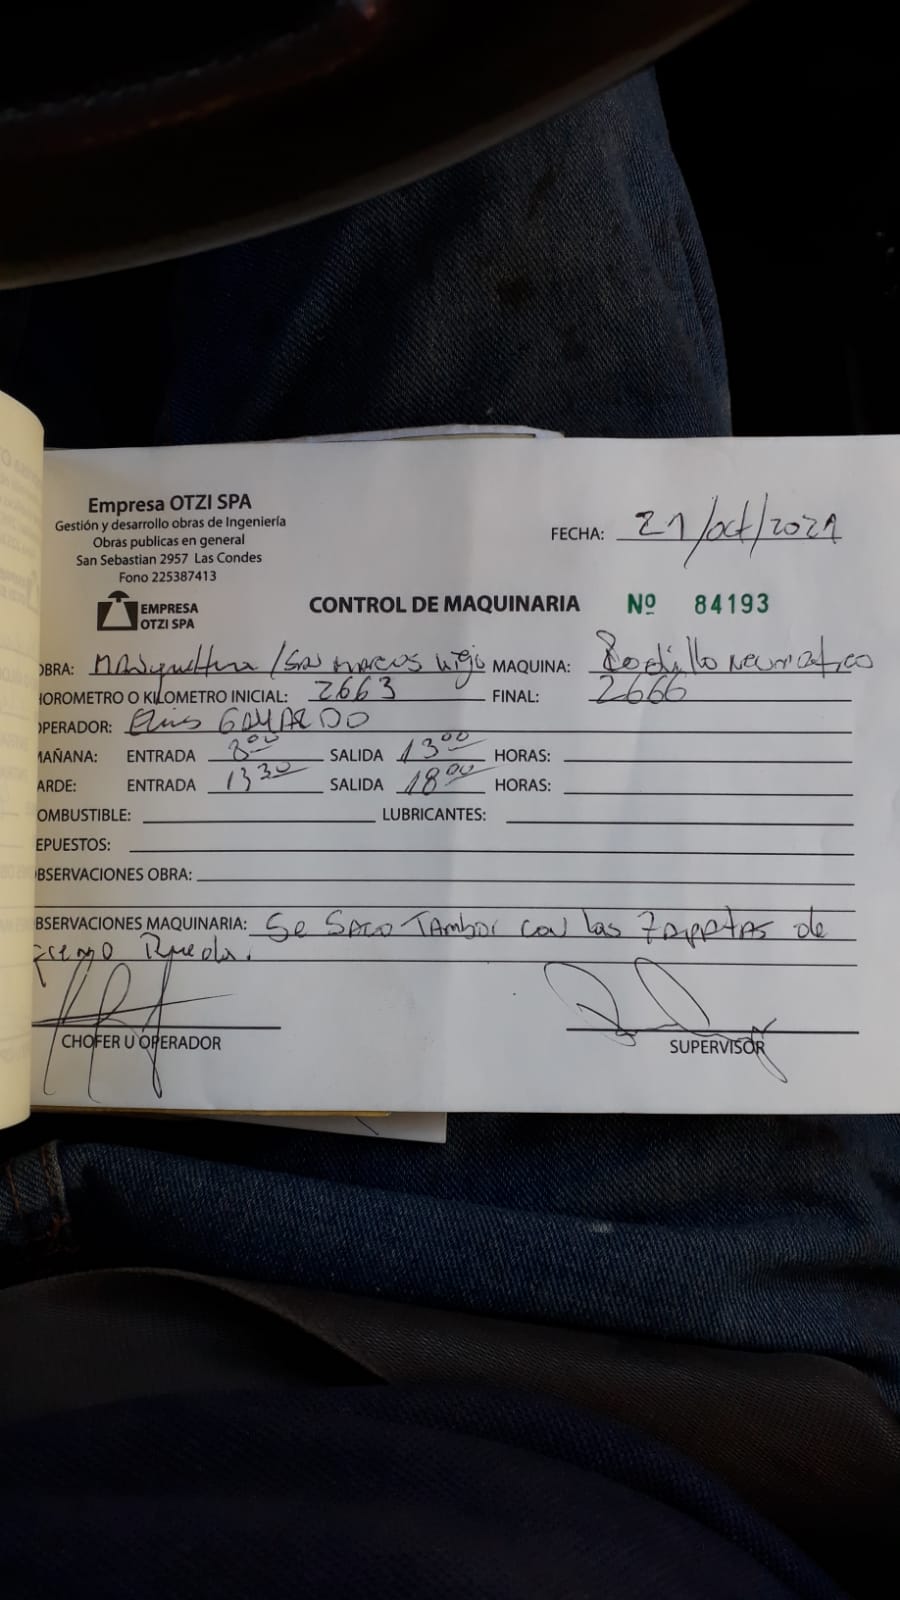 Empresa OTZI SPA
Gestión y desarrollo obras de Ingeniería
Obras publicas en general
San Sebastian 2957 Las Condes
Fono 225387413
FECHA: 21/oct/2021
EMPRESA
OTZI SPA
CONTROL DE MAQUINARIA Nº 84193
OBRA: /San MARCOS Viejo MAQUINA: Rodillo Neumatico
HOROMETRO O KILOMETRO INICIAL: 2663 FINAL: 2666
OPERADOR:
MAÑANA: ENTRADA 8:00 SALIDA 13:00 HORAS:
TARDE: ENTRADA 13:30 SALIDA 18:00 HORAS:
COMBUSTIBLE: LUBRICANTES:
REPUESTOS:
OBSERVACIONES OBRA:
OBSERVACIONES MAQUINARIA: Se Saco Tambor con las Zapatas de
Rueda.
CHOFER U OPERADOR
SUPERVISOR